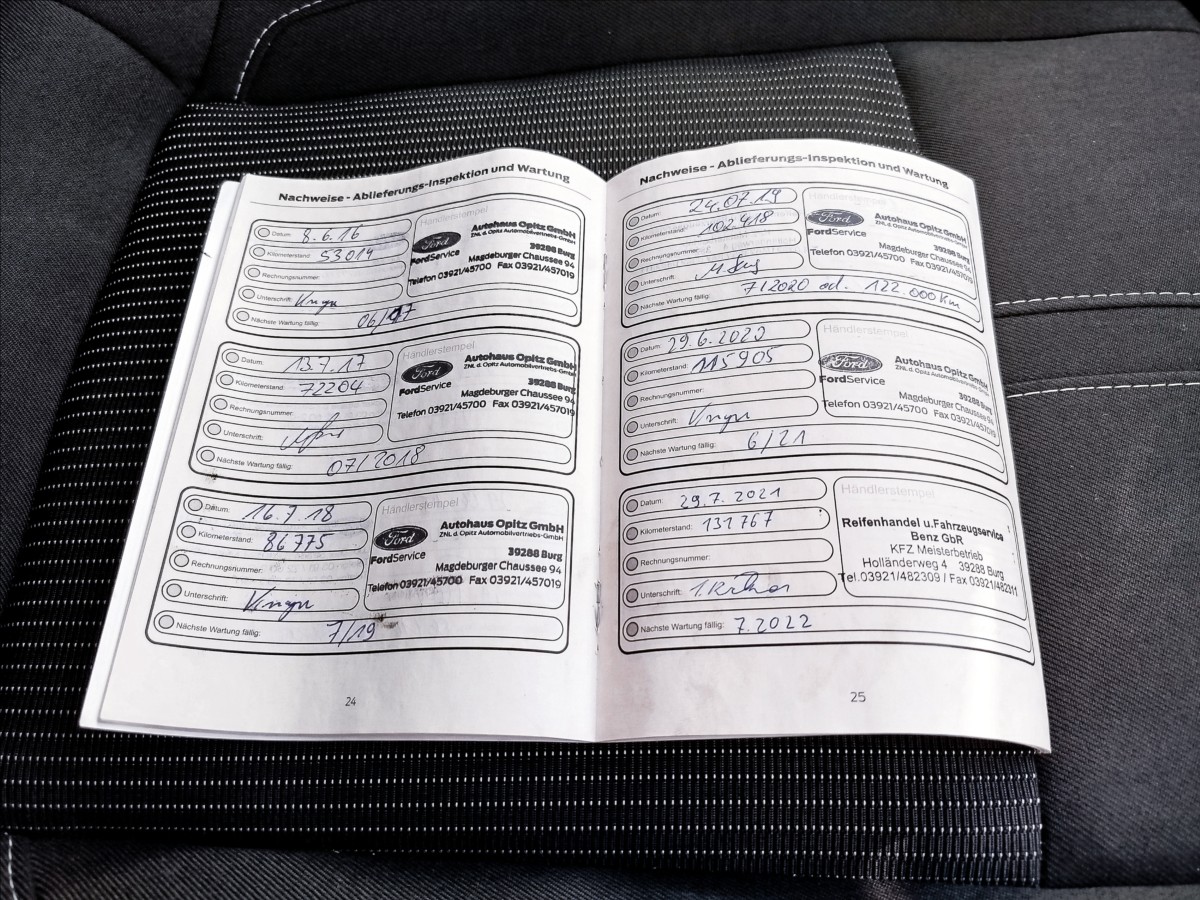 Nachweise - Ablieferungs-Inspektion und Wartung
Händlerstempel
Datum: 8.6.16
Kilometerstand: 53014
Rechnungsnummer:
Unterschrift:
Nächste Wartung fällig: 06/17
Ford
FordService
Autohaus Opitz GmbH
ZNL d. Opitz Automobilvertriebs-GmbH
39288 Burg
Magdeburger Chaussee 94
Telefon 03921/45700 Fax 03921/457019
Händlerstempel
Datum: 13.7.17
Kilometerstand: 72204
Rechnungsnummer:
Unterschrift:
Nächste Wartung fällig: 07/2018
Ford
FordService
Autohaus Opitz GmbH
ZNL d. Opitz Automobilvertriebs-GmbH
39288 Burg
Magdeburger Chaussee 94
Telefon 03921/45700 Fax 03921/457019
Händlerstempel
Datum: 16.7.18
Kilometerstand: 86775
Rechnungsnummer:
Unterschrift:
Nächste Wartung fällig: 7/19
Ford
FordService
Autohaus Opitz GmbH
ZNL d. Opitz Automobilvertriebs-GmbH
39288 Burg
Magdeburger Chaussee 94
Telefon 03921/45700 Fax 03921/457019
24
Nachweise - Ablieferungs-Inspektion und Wartung
Händlerstempel
Datum: 24.07.19
Kilometerstand: 102.418
Rechnungsnummer:
Unterschrift:
Nächste Wartung fällig: 7/2020 od. 122.000 Km
Ford
FordService
Autohaus Opitz GmbH
ZNL d. Opitz Automobilvertriebs-GmbH
39288 Burg
Magdeburger Chaussee 94
Telefon 03921/45700 Fax 03921/457019
Händlerstempel
Datum: 29.6.2020
Kilometerstand: 115905
Rechnungsnummer:
Unterschrift:
Nächste Wartung fällig: 6/21
Ford
FordService
Autohaus Opitz GmbH
ZNL d. Opitz Automobilvertriebs-GmbH
39288 Burg
Magdeburger Chaussee 94
Telefon 03921/45700 Fax 03921/457019
Händlerstempel
Datum: 29.7.2021
Kilometerstand: 131767
Rechnungsnummer:
Unterschrift:
Nächste Wartung fällig: 7.2022
Reifenhandel u.Fahrzeugservice
Benz GbR
KFZ Meisterbetrieb
Holländerweg 4 39288 Burg
Tel.03921/482309 / Fax 03921/482311
25